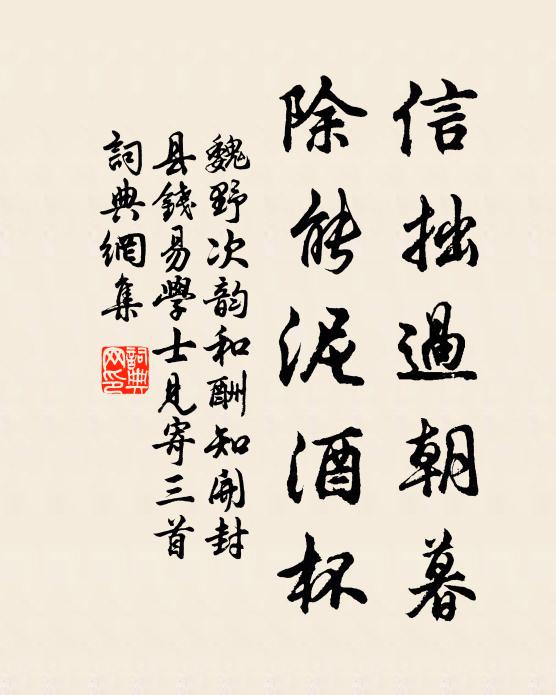 信拙過朝暮
除能泥酒杯
魏野次韵和酬知開封
县錢易學士见寄三首
詞典網集
詞典
网印